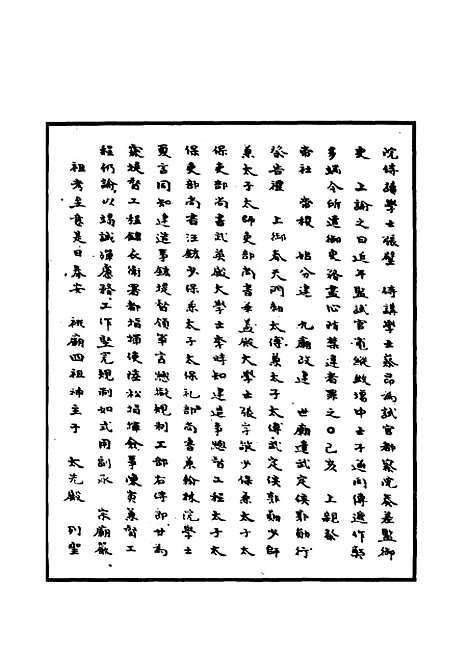 院侍講學士張璧　侍講學士蔡昂為試官都察院奏差監御
史　上諭之曰近年監試官寬縱致場中士子通同傳遞作弊
多端今所遣御史務盡心防禁違者罪之○己亥　上親祭
帝社　帝稷　始分建　九廟改建　世廟遣武定侯郭勛行
祭告禮　上御奉天門勑太傅兼太子太傅武定侯郭勛少師
兼太子太師吏部尚書華蓋殿大學士張孚敬少保兼太子太
保吏部尚書武英殿大學士李時知建造事總督工程太子太
保吏部尚書汪鋐少保兼太子太保禮部尚書兼翰林院學士
夏言同知建造事鋐提督領軍言總擬規制工部右侍郎甘為
霖提督工程錦衣衛署都指揮使陸松指揮僉事陳寅兼督工
程仍諭以竭誠潔慮務工作堅完規制如式用副永　宗廟嚴
祖考至意是日奉安　祧廟四祖神主于　太先殿　列聖